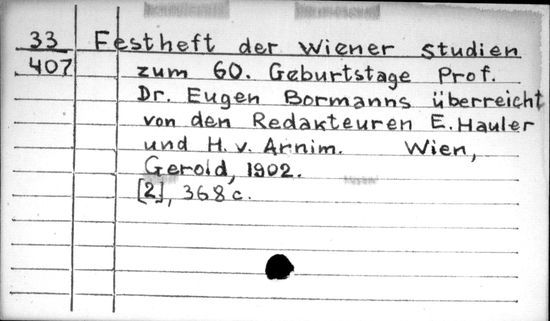 33 Festheft der Wiener Studien
407 zum 60. Geburtstage Prof.
Dr. Eugen Bormanns überreicht
von den Redakteuren E. Hauler
und H. v. Arnim. Wien,
Gerold, 1902.
[2], 368 c.